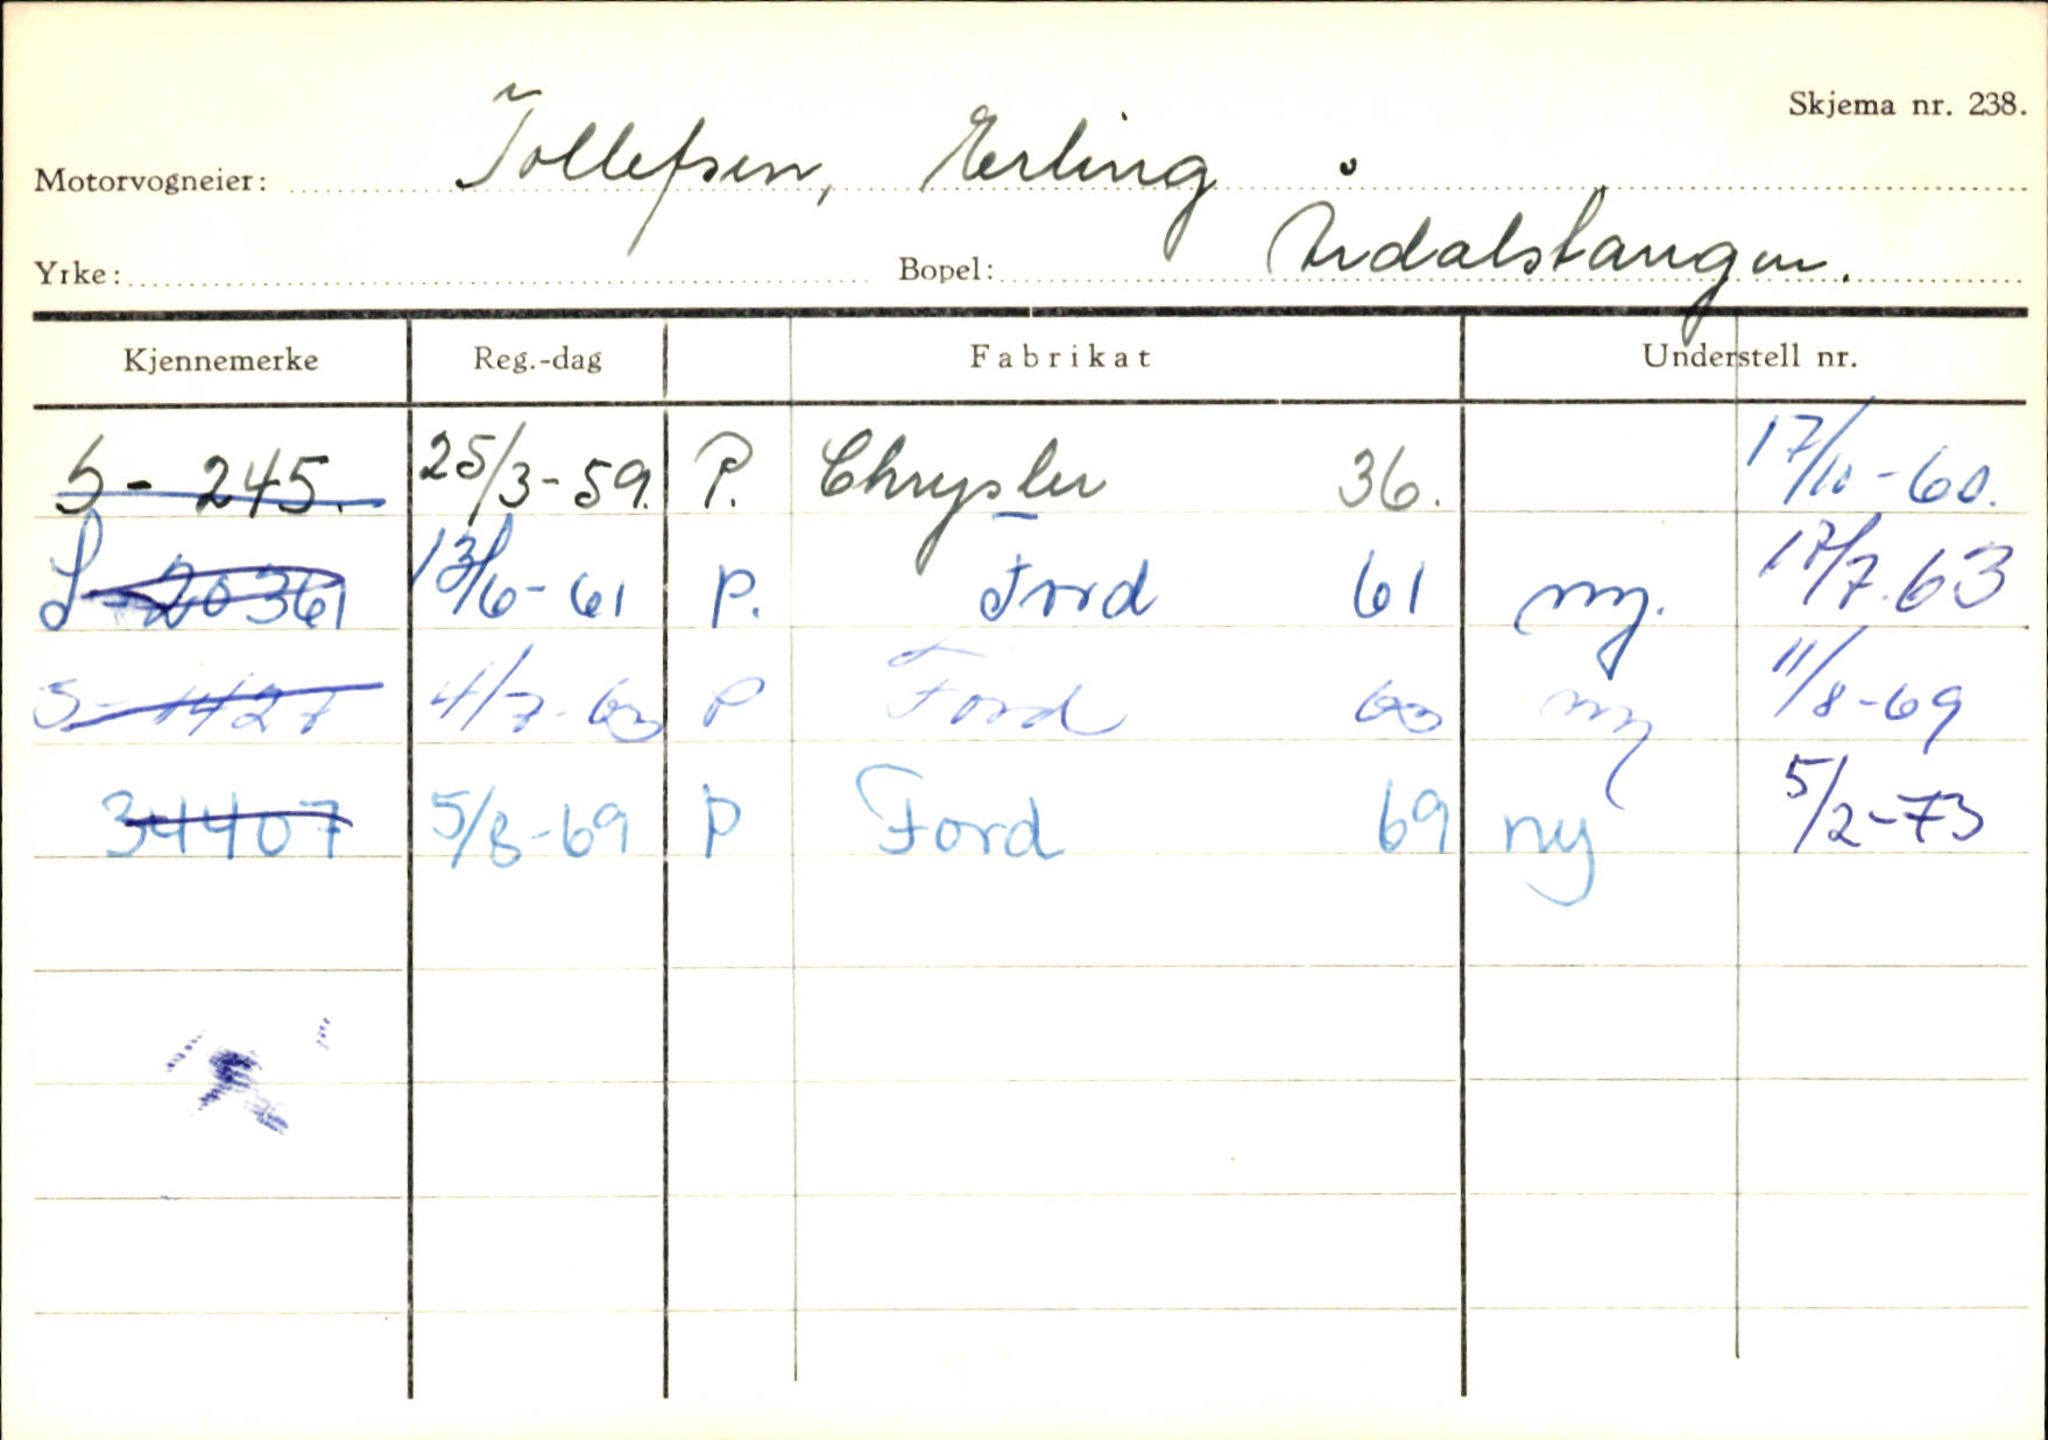 Skjema nr. 238.
Motorvogneier: Tollefsen, Erling
Yrke: Bopel: Årdalstangen.
Kjennemerke Reg.-dag Fabrikat Understell nr.
S - 245. 25/3-59. P. Chrysler 36. 17/10-60.
S-20361 13/6-61 P. Ford 61 ny. 17/7.63
S-1427 4/7-63 P Ford 63 ny 11/8-69
34407 5/8-69 P Ford 69 ny 5/2-73